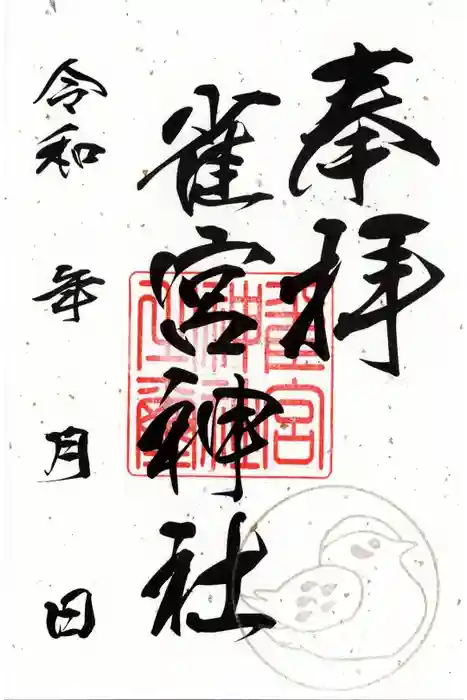 奉拝
雀宮神社
令和 年 月 日
雀宮
神社